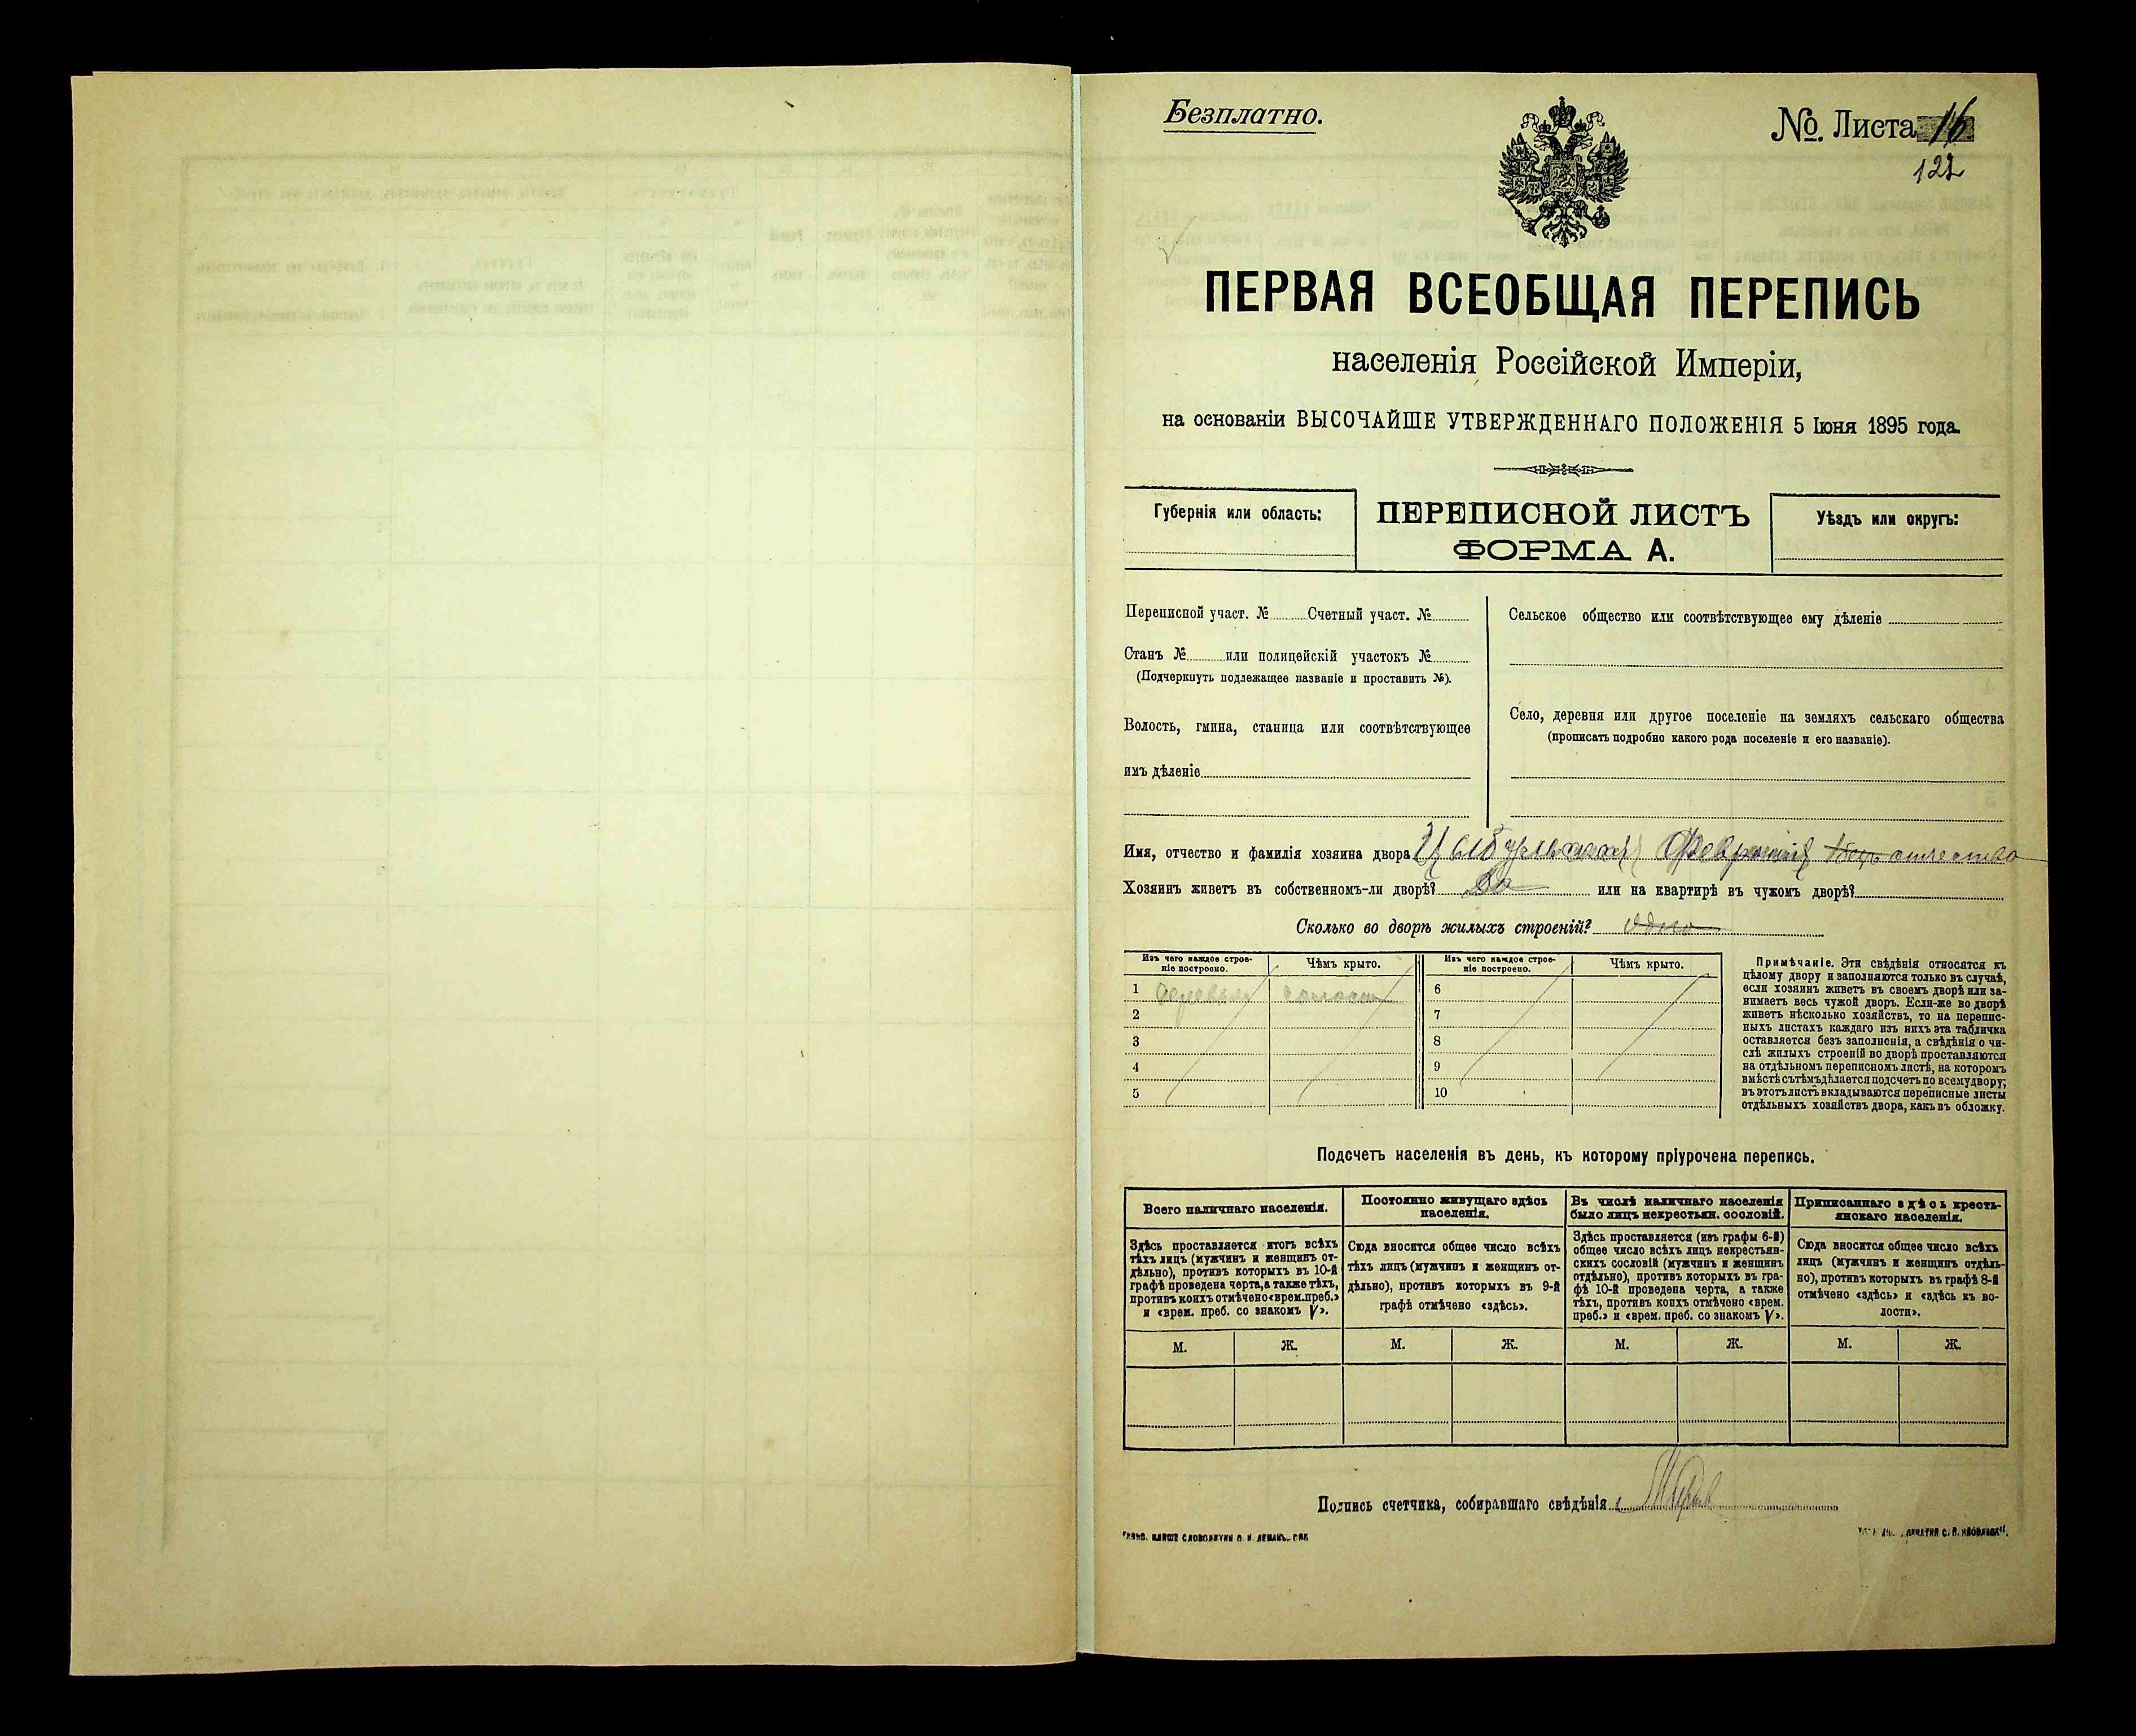 Безплатно.
№. Листа 16
122
ПЕРВАЯ ВСЕОБЩАЯ ПЕРЕПИСЬ
населенія Россійской Имперіи,
на основаніи ВЫСОЧАЙШЕ УТВЕРЖДЕННАГО ПОЛОЖЕНІЯ 5 Іюня 1895 года.
Губернія или область:
ПЕРЕПИСНОЙ ЛИСТЪ
ФОРМА А.
Уѣздъ или округъ:
Переписной участ. № Счетный участ. №
Станъ № или полицейскій участокъ №
(Подчеркнуть подлежащее названіе и проставить №).
Волость, гмина, станица или соотвѣтствующее
имъ дѣленіе
Сельское общество или соотвѣтствующее ему дѣленіе
Село, деревня или другое поселеніе на земляхъ сельскаго общества
(прописать подробно какого рода поселеніе и его названіе).
Имя, отчество и фамилія хозяина двора Цыбульская Февронія безъ отчества
Хозяинъ живетъ въ собственномъ-ли дворѣ? Да или на квартирѣ въ чужомъ дворѣ?
Сколько во дворѣ жилыхъ строеній? одно
Изъ чего каждое строе-
ніе построено.
Чѣмъ крыто.
Изъ чего каждое строе-
ніе построено.
Чѣмъ крыто.
1 соломою 6
2 7
3 8
4 9
5 10
Примѣчаніе. Эти свѣдѣнія относятся къ
цѣлому двору и заполняются только въ случаѣ,
если хозяинъ живетъ въ своемъ дворѣ или за-
нимаетъ весь чужой дворъ. Если-же во дворѣ
живетъ нѣсколько хозяйствъ, то на перепис-
ныхъ листахъ каждаго изъ нихъ эта табличка
оставляется безъ заполненія, а свѣдѣнія о чи-
слѣ жилыхъ строеній во дворѣ проставляются
на отдѣльномъ переписномъ листѣ, на которомъ
вмѣстѣ съ тѣмъ дѣлается подсчетъ по всему двору;
въ этотъ листъ вкладываются переписные листы
отдѣльныхъ хозяйствъ двора, какъ въ обложку.
Подсчетъ населенія въ день, къ которому пріурочена перепись.
Всего наличнаго населенія.
Здѣсь проставляется итогъ всѣхъ
тѣхъ лицъ (мужчинъ и женщинъ от-
дѣльно), противъ которыхъ въ 10-й
графѣ проведена черта, а также тѣхъ,
противъ коихъ отмѣчено «врем. преб.»
и «врем. преб. со знакомъ V».
Постоянно живущаго здѣсь
населенія.
Сюда вносится общее число всѣхъ
тѣхъ лицъ (мужчинъ и женщинъ от-
дѣльно), противъ которыхъ въ 9-й
графѣ отмѣчено «здѣсь».
Въ числѣ наличнаго населенія
было лицъ некрестьян. сословій.
Здѣсь проставляется (изъ графы 6-й)
общее число всѣхъ лицъ некрестьян-
скихъ сословій (мужчинъ и женщинъ
отдѣльно), противъ которыхъ въ гра-
фѣ 10-й проведена черта, а также
тѣхъ, противъ коихъ отмѣчено «врем.
преб.» и «врем. преб. со знакомъ V».
Приписаннаго здѣсь кресть-
янскаго населенія.
Сюда вносится общее число всѣхъ
лицъ (мужчинъ и женщинъ отдѣль-
но), противъ которыхъ въ графѣ 8-й
отмѣчено «здѣсь» и «здѣсь къ во-
лости».
М. Ж. М. Ж. М. Ж. М. Ж.
Подпись счетчика, собиравшаго свѣдѣнія